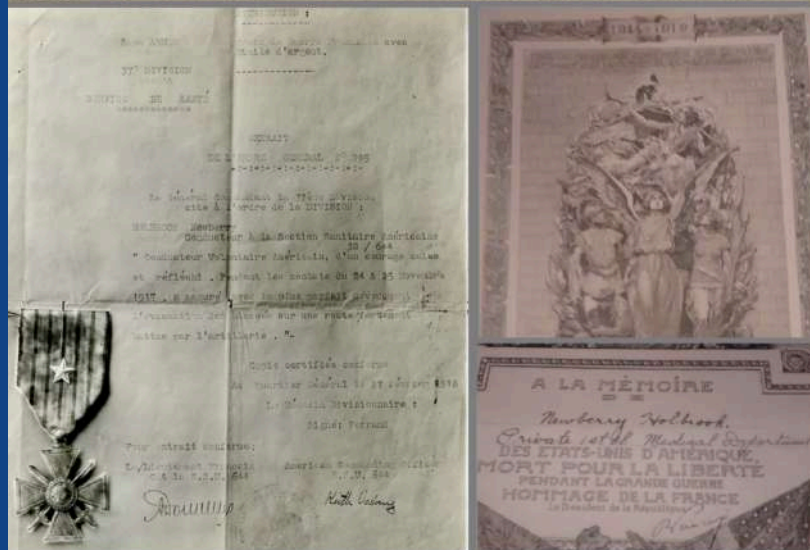 avec
étoile d'argent.
37° DIVISION
SERVICE DE SANTÉ
EXTRAIT
DE L'ORDRE GENERAL N° 395
Le Général Commandant la 37ème Division,
cite à l'ordre de la DIVISION :
HOLBROOK Newberry
Conducteur à la Section Sanitaire Américaine
30 / 644
" Conducteur Volontaire Américain, d'un courage calme
et réfléchi . Pendant les combats du 24 & 25 Novembre
1917, a assuré avec le plus parfait dévouement
l'évacuation des blessés sur une route fortement
battue par l'artillerie . "-
Copie certifiée conforme
Au Quartier Général le 1918
Le Médecin Divisionnaire :
Signé:
Pour extrait conforme:
Le Lieutenant Français American Commanding Officer
S.S.U. 644 S.S.U. 644
1914-1918
A LA MÉMOIRE
DE
Newberry Holbrook.
Private 1st cl Medical Department
DES ETATS-UNIS D'AMÉRIQUE,
MORT POUR LA LIBERTÉ
PENDANT LA GRANDE GUERRE
HOMMAGE DE LA FRANCE
Le Président de la République